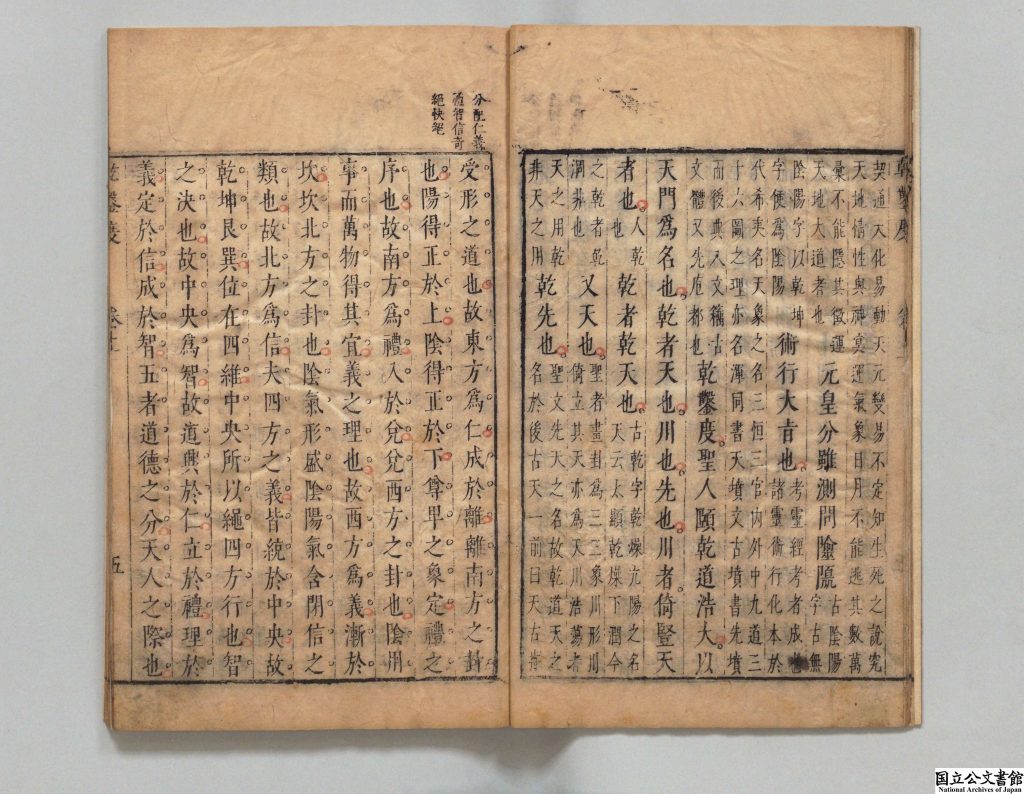 契道入化易動天元變易不定知生死之說究
天地情性與神冥運氣象日月不能逃其數萬
彙不能隱其徵運
天地太道者也
元皇分雖測問陰隲
古陰陽
字古無
陰陽字以乾坤
字便為陰陽
術行大旨也
考靈經考者成也
諸靈術行化本於
代希夷名天象之名三恒三官內外中九道三
十六圖之理亦名渾同書天墳文古墳書先墳
而後典入文籍古
文體又先庖都也
乾鑿度聖人頤乾道浩大以
天門爲名也乾者天也川也先也川者倚豎天
者也
人乾
也
乾者乾天也
古乾字乾燥亢陽之名
天云太顯乾燥下潤今
之乾者乾
潤井也
又天也
聖者畫卦爲三三象川形川
倚立其天亦爲天川浩蕩者
天之用乾
非天之用
乾先也
聖文先大之名故乾道天之
名於後古天一前日天古
乾鑿度
分配仁義
禮智信奇
絕快絕
受形之道也故東方爲仁成於離離南方之卦
也陽得正於上陰得正於下尊卑之象定禮之
序也故南方爲禮入於兌兌西方之卦也陰用
事而萬物得其宜義之理也故西方爲義漸於
坎坎北方之卦也陰氣形盛陰陽氣含閉信之
類也故北方爲信夫四方之義皆統於中央故
乾坤艮巽位在四維中央所以繩四方行也智
之決也故中央爲智故道興於仁立於禮理於
義定於信成於智五者道德之分天人之際也
乾鑿度
五
国立公文書館
National Archives of Japan